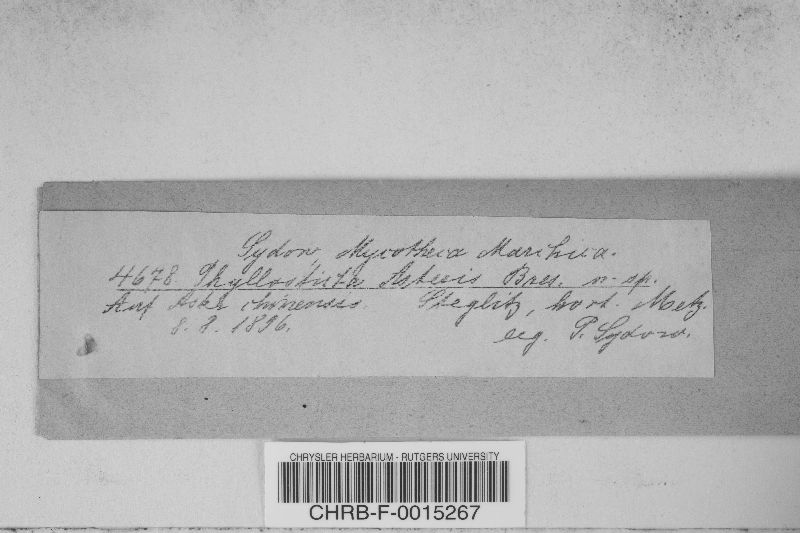 Sydow, Mycotheca Marchica.
4678 Phyllosticta Asteris Bres. n. sp.
Auf Aster chinensis. Steglitz, hort. Metz.
8. 8. 1896. leg. P. Sydow.
CHRYSLER HERBARIUM - RUTGERS UNIVERSITY
CHRB-F-0015267